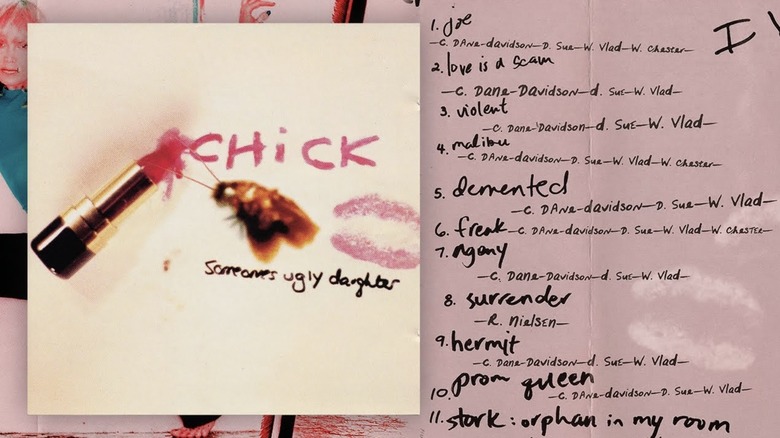 CHICK
someone's ugly daughter
I
1. joe
—C. Dane-davidson—D. Sue—W. Vlad—W. Chester—
2. love is a scam
—C. Dane-Davidson—d. Sue—W. Vlad—
3. violent
—C. Dane-Davidson—d. Sue—W. Vlad—
4. malibu
—C. Dane-davidson—D. Sue—W. Vlad—W. Chester—
5. demented
—C. Dane-davidson—D. Sue—W. Vlad—
6. freak—C. Dane-davidson—D. Sue—W. Vlad—W. Chester—
7. agony
—C. Dane-Davidson—d. Sue—W. Vlad—
8. surrender
—R. Nielsen—
9. hermit
—C. Dane-Davidson—d. Sue—W. Vlad—
10. prom queen
—C. Dane-davidson—D. Sue—W. Vlad—
11. stork: orphan in my room